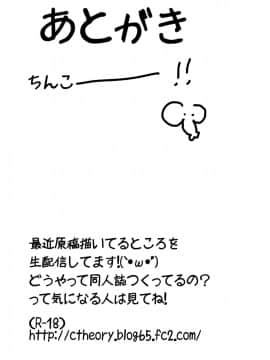 あとがき
ちんこ―――――!!
最近原稿描いてるところを
生配信してます!(`•ω•´)
どうやって同人誌つくってるの?
って気になる人は見てね!
(R-18)
http://ctheory.blog65.fc2.com/